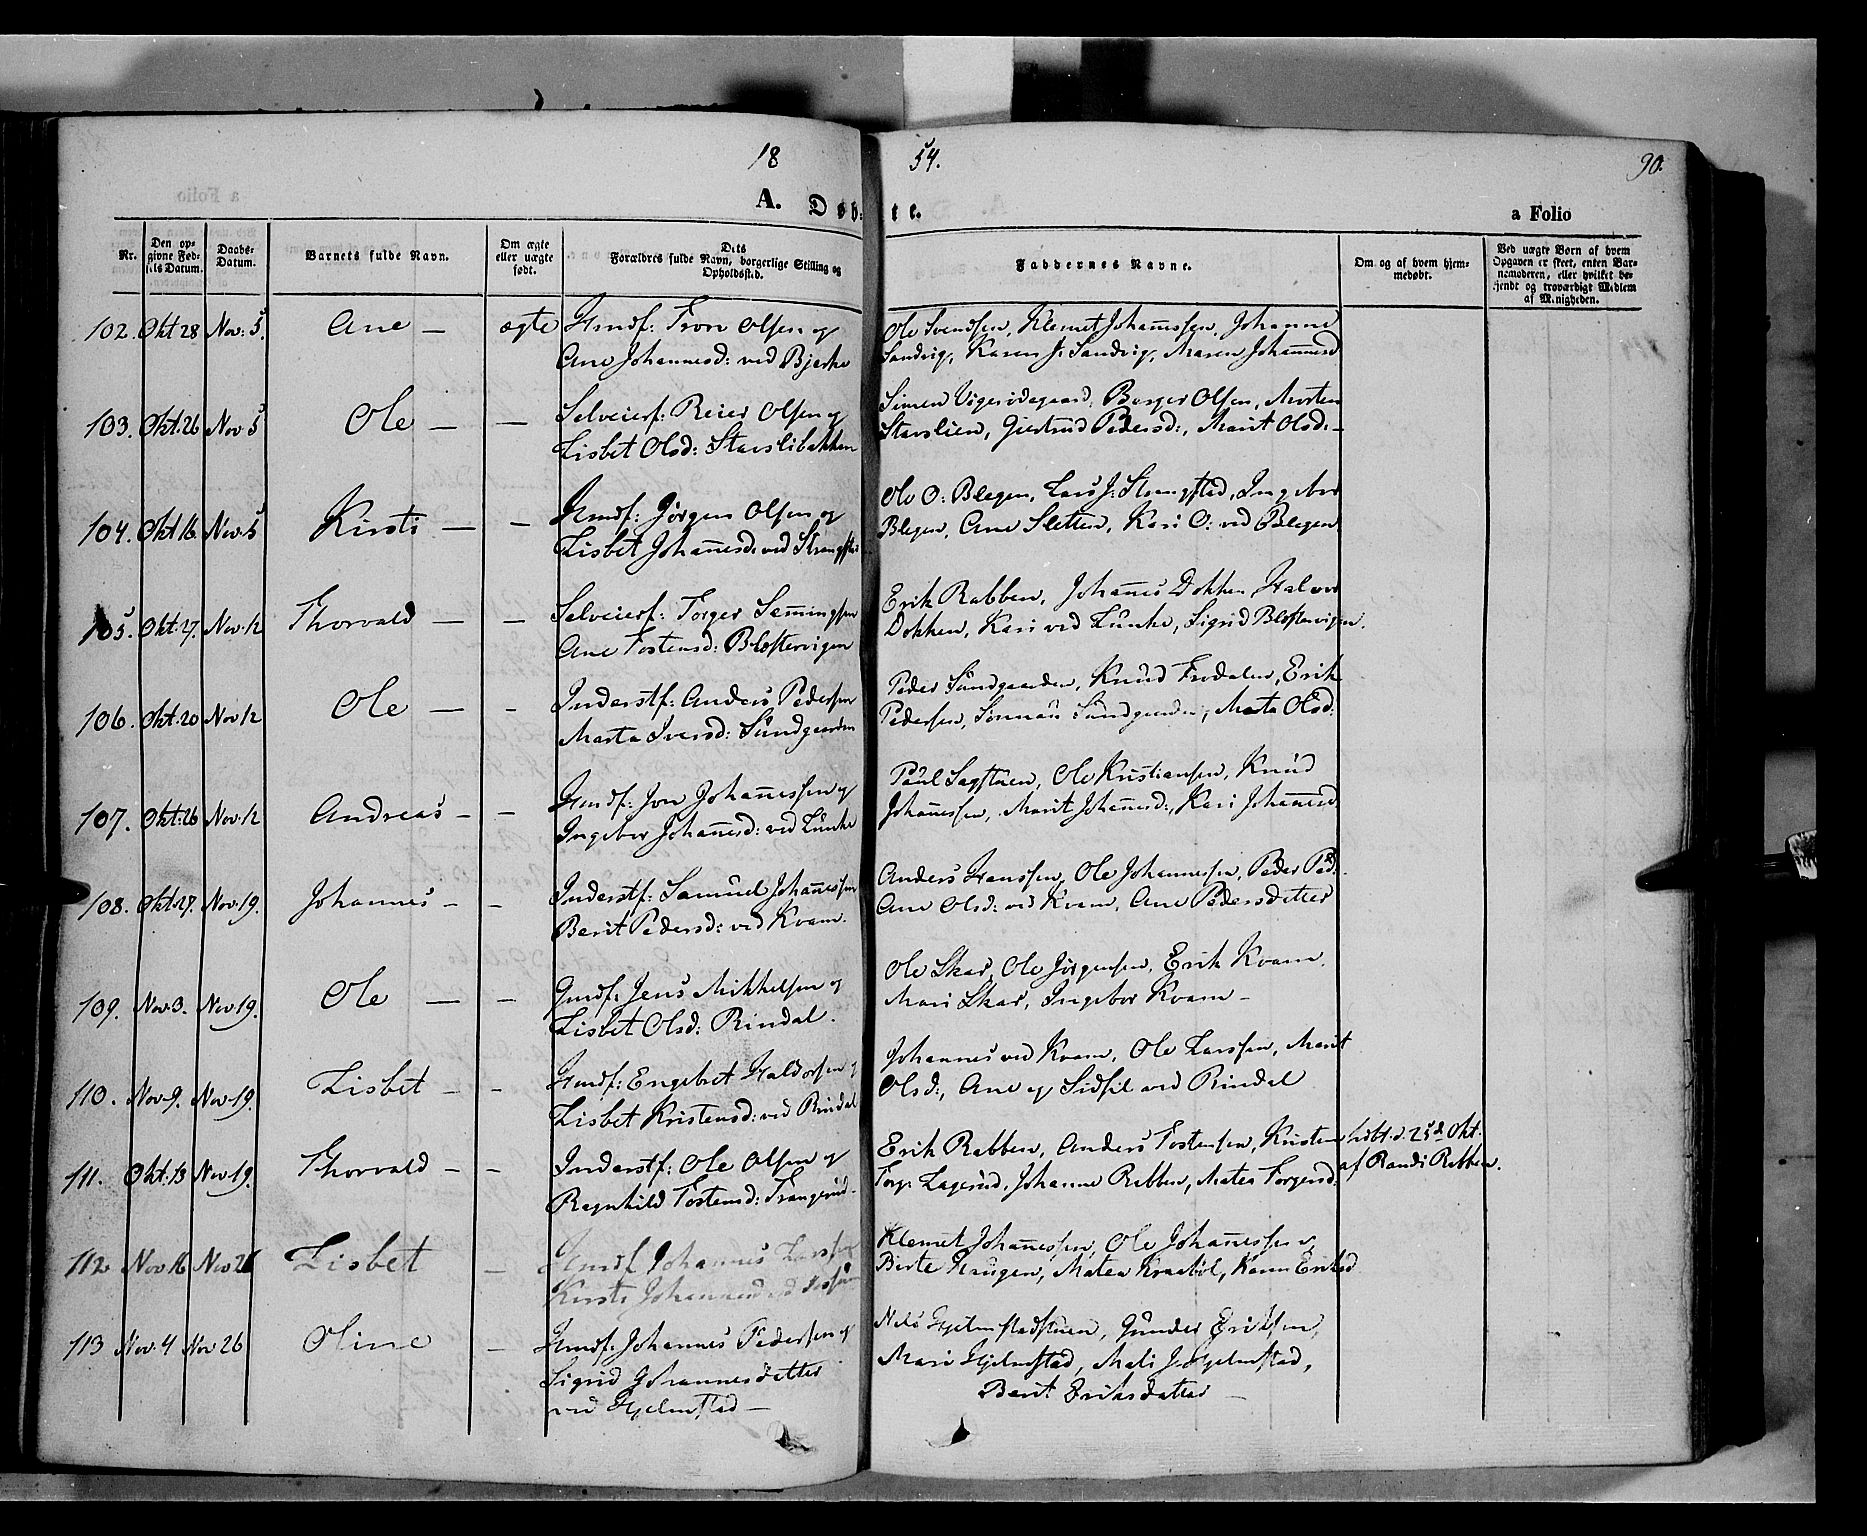 1854.
90.
A. Døbte.
a Folio
Nr.
Den opgivne Fødsels Datum.
Daabs-Datum.
Barnets fulde Navn.
Om ægte eller uægte født.
Dets Forældres fulde Navn, borgerlige Stilling og Opholdssted.
Faddernes Navne.
Om og af hvem hjemmedøbt.
Ved uægte Børn af hvem Opgaven er skeet, enten Barnemoderen, eller hvilket bekjendt og troværdigt Medlem af Menigheden.
102. Okt 28 Nov: 5. Ane — ægte Hmdf: Tron Olsen og
Ane Johannesd: ved Bjerke
Ole Svendsen, Klemet Johannssen, Johanne
Sandvig, Karen J: Sandvig, Maren Johannesd
103. Okt: 26 Nov 5 Ole — — Selveierf: Reier Olsen og
Lisbet Olsd: Stavslibakken
Simen Vigerødegaard, Berger Olsen, Morten
Stavslien, Giertrud Pedersd:, Marit Olsd: —
104. Okt 16. Nov 5 Kirsti — — Hmdf: Jørgen Olsen og
Lisbet Johannesd: ved
Ole O: Blegen, Lars J: Ingebor
Blegen, Ane Sletten, Kari O: ved Blegen
105. Okt: 27. Nov: 12 Thorvald — — Selveierf: Torger Sæmingsen
Ane Tostensd: Bløstervigen
Erik Rabben, Johannes Dokken Halvor
Dokken, Kari ved Lunke, Sigrid Bløstervigen.
106. Okt: 20 Nov 12 Ole — — Inderstf: Anders Pedersen
Marta Iversd: Sundgaarden
Peder Sundgaarden, Knud Frodalen, Erik
Pedersen, Sundgaarden, Mata Olsd:
107. Okt: 26 Nov: 12 Andreas — — Hmdf: Jon Johannessen og
Ingebor Johannesd: ved Lunke
Paul Sagstuen, Ole Kristiansen, Knud
Johannessen, Marit Johannesd:, Kari Johannesd
108. Okt: 27. Nov: 19. Johannes — — Inderstf: Samuel Johannessen
Berit Pedersd: ved Kvam.
Anders Hanssen, Ole Johannessen, Peder Ped:
Ane Olsd: ved Kvam, Ane Pedersdatter
109. Nov: 3. Nov 19. Ole — — Gmdf: Jens Mikkelsen og
Lisbet Olsd: Rindal.
Ole Skar, Ole Jørgensen, Erik Kvam.
Mari Skar, Ingebor Kvam —
110. Nov: 9. Nov: 19. Lisbet — — Hmdf: Engebret Haldorsen og
Lisbet Kristensd: ved Rindal
Johannes ved Kvam, Ole Larssen, Marit
Olsd:, Ane og Sidsil ved Rindal
111. Okt: 13 Nov: 19. Thorvald — — Inderstf: Ole Olsen og
Ragnhild Tostensd: Trangrud.
Erik Rabben, Anders Tostensen, Kristen
Lagerud, Johanne Rabben, Matea Torgersd:
hdbt. d. 25de Okt:
af Randi Rabben.
112. Nov 16 Nov 26 Lisbet — Hmdf Johannes Larssen
Kirsti Johannesd ved
Klemet Johannessen, Ole Johannessen,
Birte Haugen, Matea Kraabøl, Karen Eriksd
113 Nov: 4 Nov 26 Oline — Hmdf: Johannes Pedersen og
Sigrid Johannesdatter
ved Hjelmstad —
Nils Hjelmstadstuen, Gunder Eriksen,
Mari Hjelmstad, Mali J: Hjelmstad,
Berit Eriksdatter —